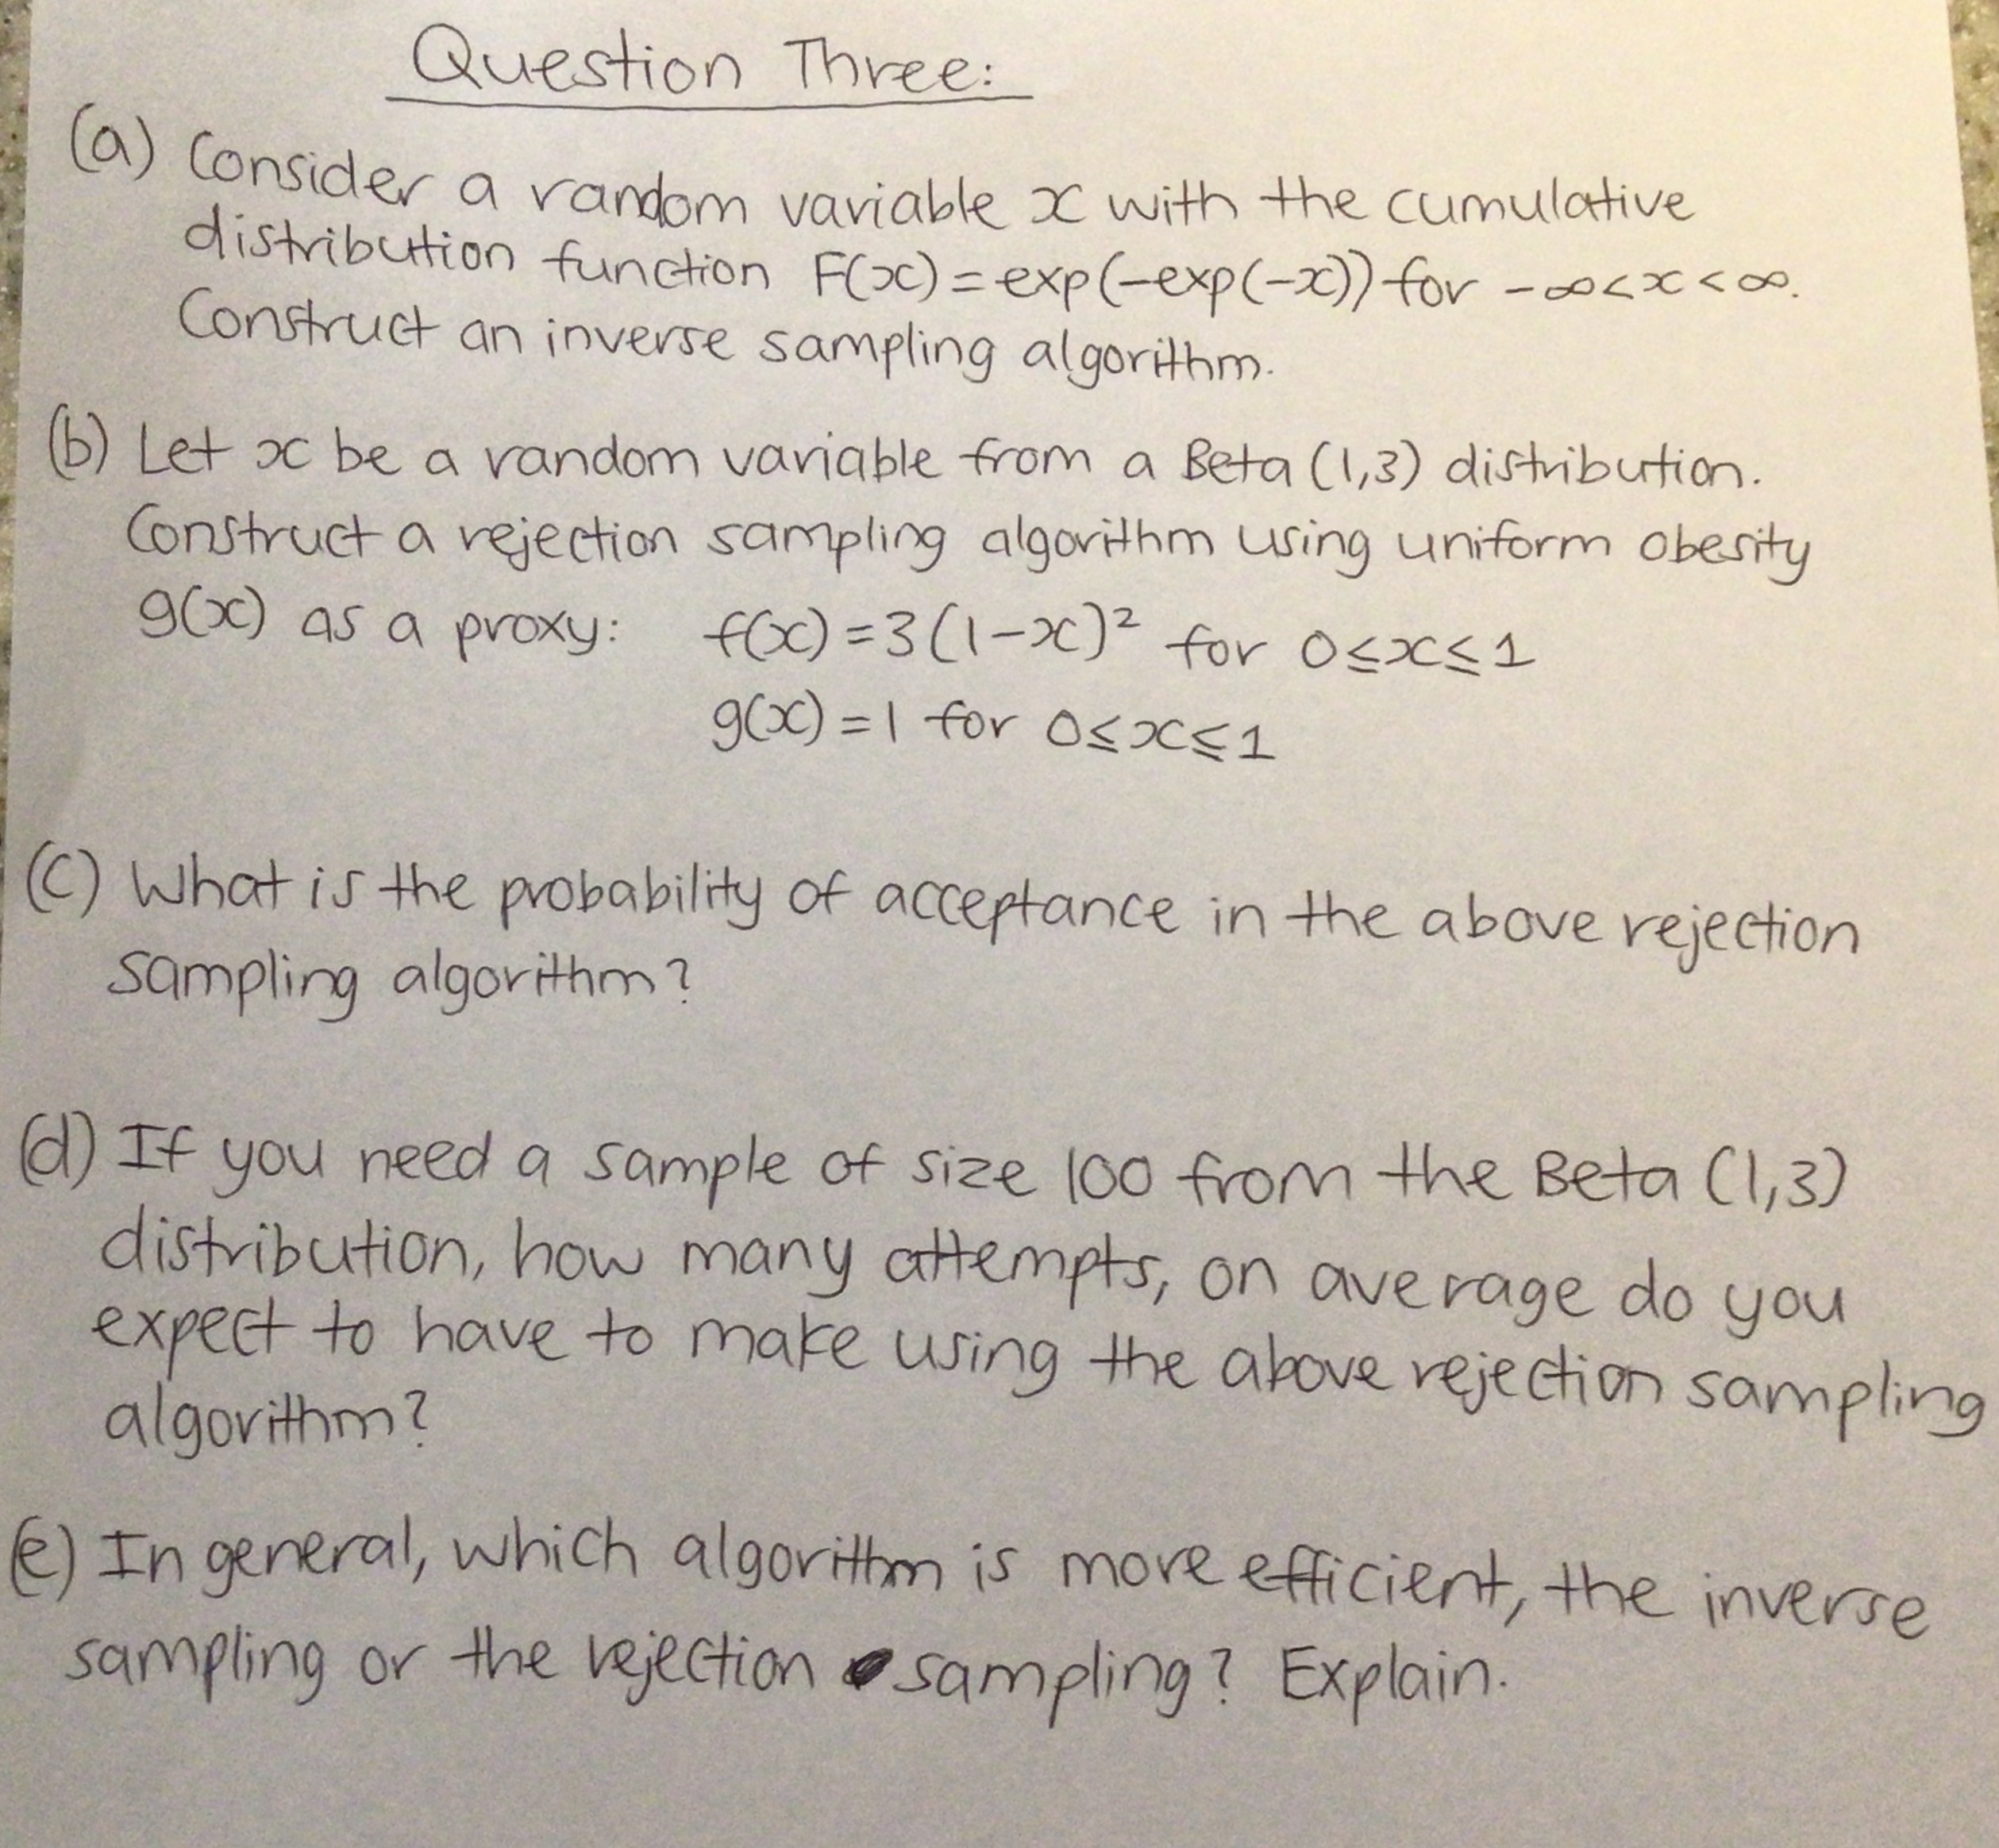 Question Three:
(a) Consider a random variable x with the cumulative
distribution function F(x) = exp(-exp(-x)) for -∞<x<∞.
Construct an inverse sampling algorithm.
(b) Let x be a random variable from a Beta (1,3) distribution.
Construct a rejection sampling algorithm using uniform obesity
g(x) as a proxy: f(x) = 3(1-x)² for 0≤x≤1
g(x) = 1 for 0≤x≤1
(c) What is the probability of acceptance in the above rejection
sampling algorithm?
(d) If you need a sample of size 100 from the Beta (1,3)
distribution, how many attempts, on average do you
expect to have to make using the above rejection sampling
algorithm?
(e) In general, which algorithm is more efficient, the inverse
sampling or the rejection sampling? Explain.